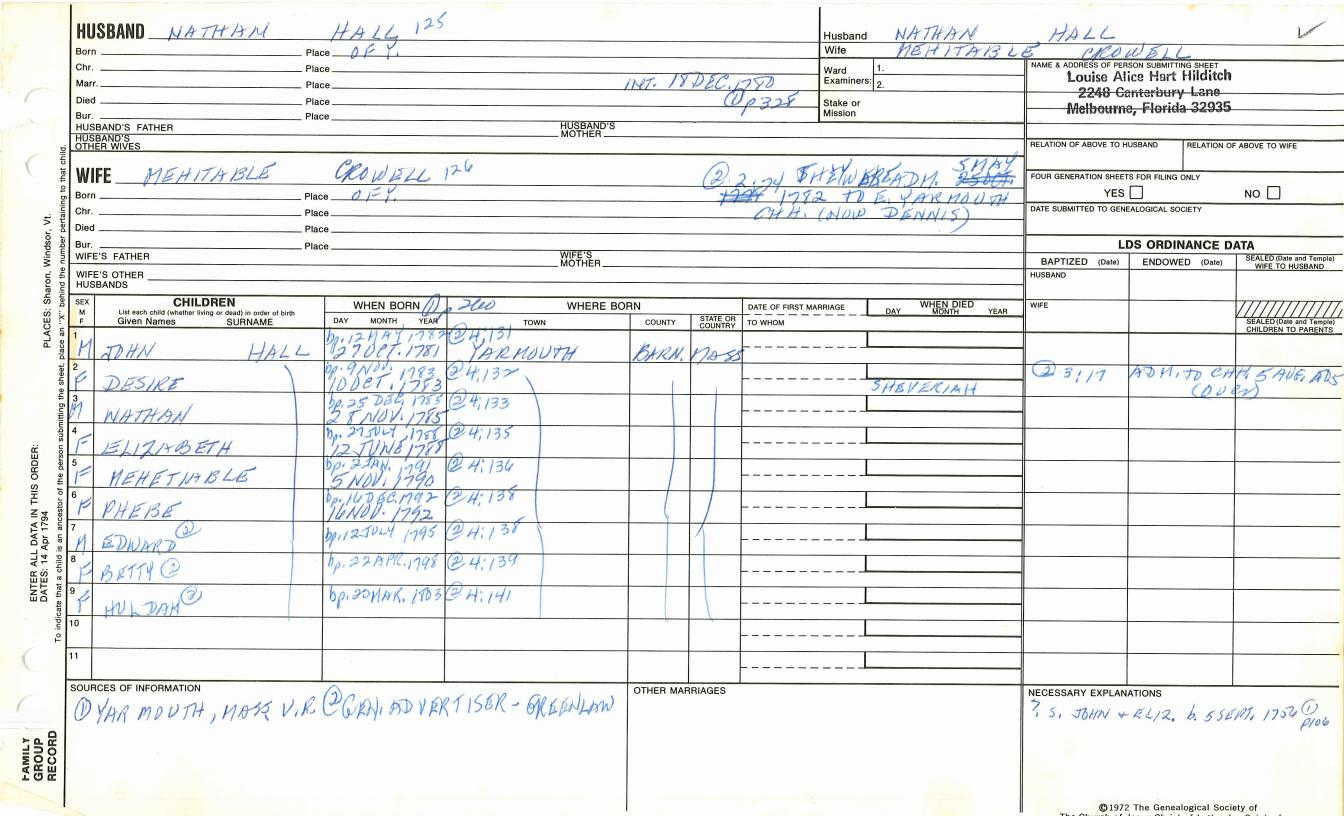 HUSBAND NATHAN HALL 125
Born Place OF Y.
Chr. Place
Marr. Place INT. 18 DEC. 1780
Died Place ① p328
Bur. Place
HUSBAND'S FATHER HUSBAND'S MOTHER
HUSBAND'S OTHER WIVES
Husband NATHAN HALL ✓
Wife MEHITABLE CROWELL
Ward Examiners: 1.
2.
Stake or Mission
NAME & ADDRESS OF PERSON SUBMITTING SHEET
Louise Alice Hart Hilditch
2248 Canterbury Lane
Melbourne, Florida 32935
RELATION OF ABOVE TO HUSBAND RELATION OF ABOVE TO WIFE
FOUR GENERATION SHEETS FOR FILING ONLY
YES NO
DATE SUBMITTED TO GENEALOGICAL SOCIETY
WIFE MEHITABLE CROWELL 126
② 2:74 ADM. 5 MAY
1782 TO E. YARMOUTH
CHH. (NOW DENNIS)
Born Place OF Y.
Chr. Place
Died Place
Bur. Place
WIFE'S FATHER WIFE'S MOTHER
WIFE'S OTHER HUSBANDS
LDS ORDINANCE DATA
BAPTIZED (Date) ENDOWED (Date) SEALED (Date and Temple) WIFE TO HUSBAND
HUSBAND
WIFE
SEALED (Date and Temple) CHILDREN TO PARENTS
SEX M F
CHILDREN
List each child (whether living or dead) in order of birth
Given Names SURNAME
WHEN BORN ① p. 260
DAY MONTH YEAR
WHERE BORN
TOWN COUNTY STATE OR COUNTRY
DATE OF FIRST MARRIAGE
TO WHOM
WHEN DIED
DAY MONTH YEAR
1 bp. 12 MAY 1782 ② 4;131
M JOHN HALL 27 OCT. 1781 YARMOUTH BARN. MASS
2 bp. 9 NOV. 1783 ② 4;132
F DESIRE 10 OCT. 1783 SHEVERIAH
② 3;17 ADM. TO CHH. 5 AUG.
(OVER)
3 bp. 25 DEC. 1785 ② 4;133
M NATHAN 28 NOV. 1785
4 bp. 27 JULY 1788 ② 4;135
F ELIZABETH 12 JUNE 1788
5 bp. 2 JAN. 1791 ② 4;136
F MEHETIABLE 5 NOV. 1790
6 bp. 16 DEC. 1792 ② 4;138
F PHEBE 16 NOV. 1792
7 bp. 12 JULY 1795 ② 4;138
M EDWARD ②
8 bp. 22 APR. 1798 ② 4;139
F BETTY ②
9 bp. 20 MAR. 1803 ② 4;141
F HULDAH ②
10
11
SOURCES OF INFORMATION
① YARMOUTH, MASS V.R. ② GEN. ADVERTISER - GREENLAW
OTHER MARRIAGES
NECESSARY EXPLANATIONS
?. S. JOHN + ELIZ. b. 5 SEPT. 1756 ①
p106
©1972 The Genealogical Society of
ENTER ALL DATA IN THIS ORDER:
DATES: 14 Apr 1794
PLACES: Sharon, Windsor, Vt.
To indicate that a child is an ancestor of the person submitting the sheet, place an "X" behind the number pertaining to that child.
FAMILY
GROUP
RECORD